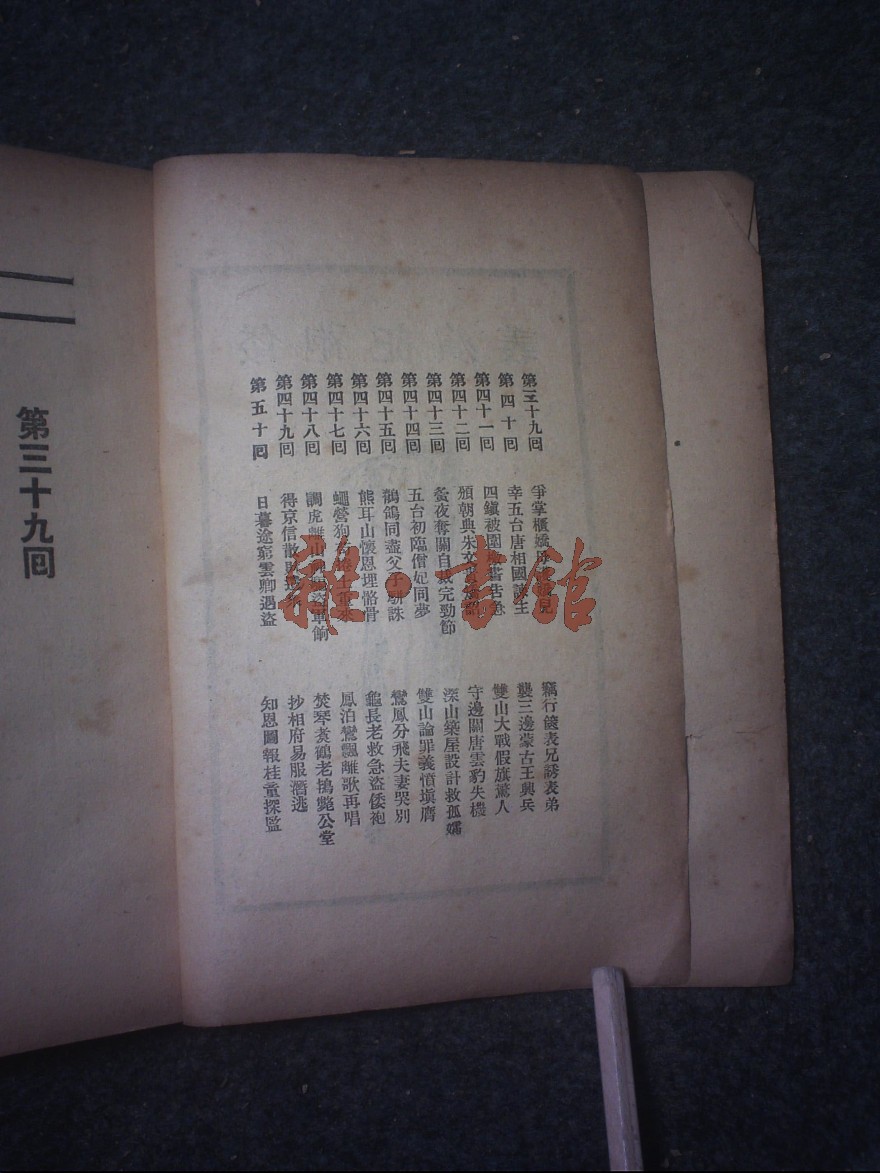 第三十九回 爭掌櫃嬌 竊行篋表兄誘表弟
第四十回 幸五台唐相國 主 襲三邊蒙古王興兵
第四十一回 四鎮被圍 書告急 雙山大戰假旗驚人
第四十二回 頒朝典朱 守邊關唐雲豹失機
第四十三回 夤夜奪關自裁完勁節 深山築屋設計救孤孀
第四十四回 五台初臨僧妃同夢 雙山論罪義憤填膺
第四十五回 鶺鴒同盡父子駢誅 鸞鳳分飛夫妻哭別
第四十六回 熊耳山懷恩埋骼骨 龜長老救急盜倭袍
第四十七回 蠅營狗 鳳泊鸞飄離歌再唱
第四十八回 調虎離山 盜單餉 焚琴煑鶴老鴇斃公堂
第四十九回 得京信散 抄相府易服潛逃
第五十回 日暮途窮雲卿遇盜 知恩圖報桂童探監
第三十九回
雜·書館